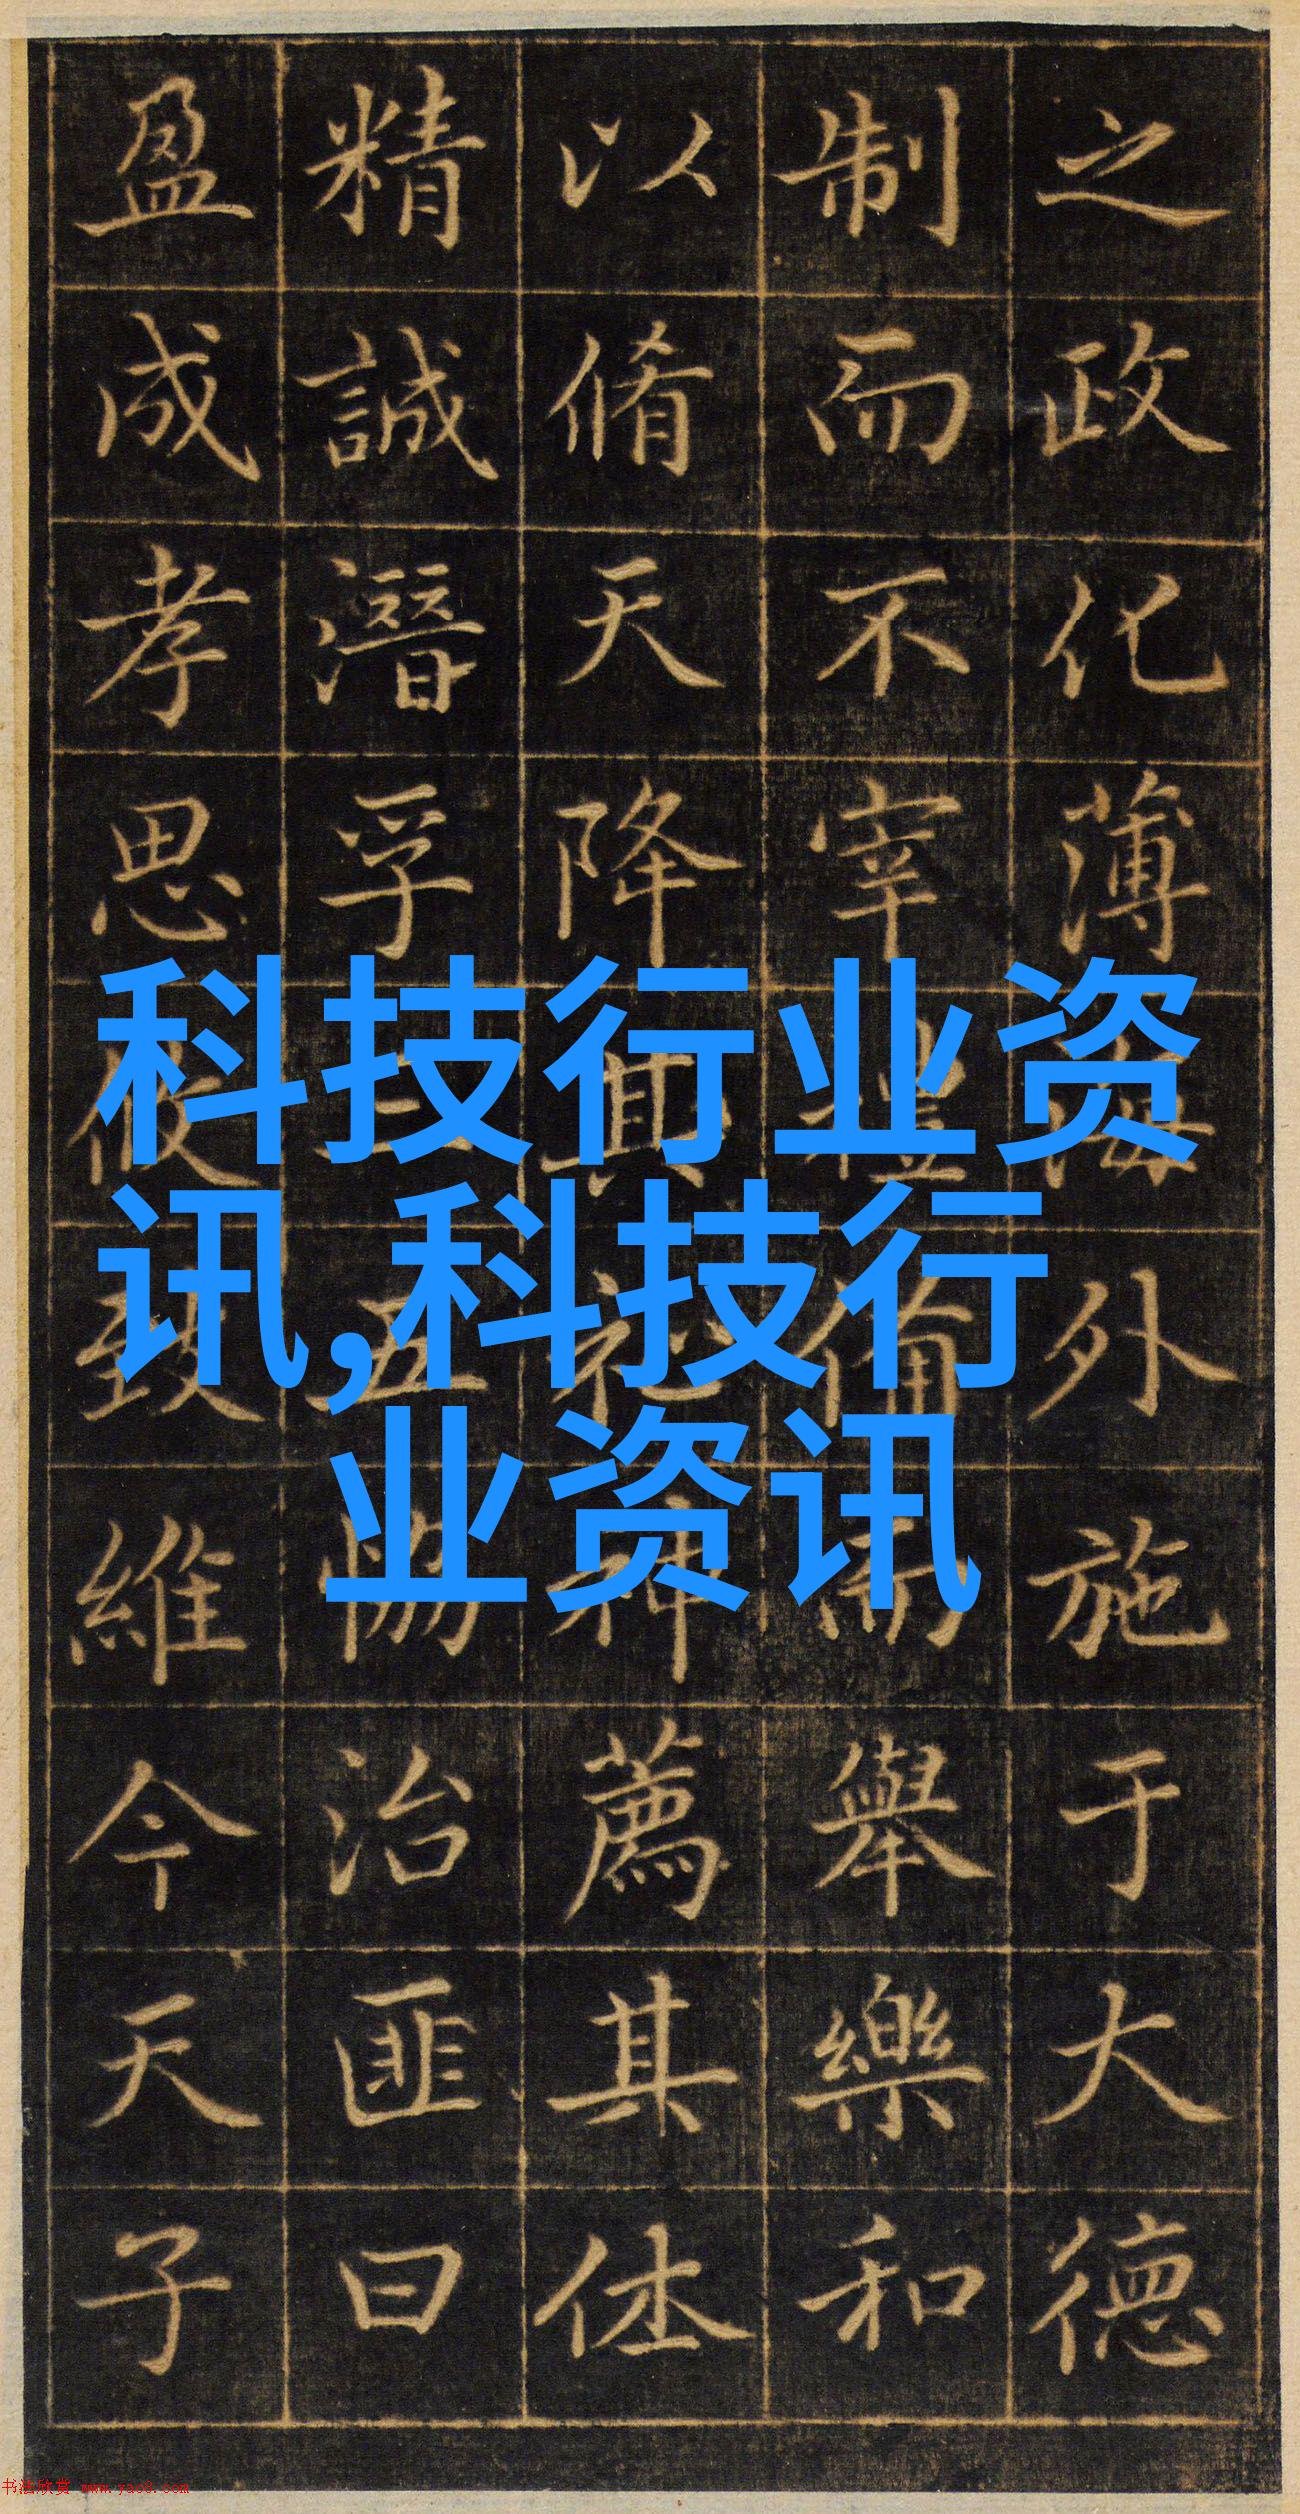 之政化薄海外施于大德
制而不宰禮備而舉樂和
以脩天降其祉神薦其休
精誠潛孚三五恊治匪曰
盈成孝思攸致維今天子
科技行业资
讯,科技行
业资讯
书法欣赏 www.yac8.com